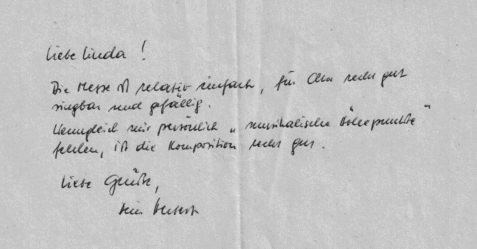 Liebe Linda !
Die Messe ist relativ einfach, für Chor recht gut
singbar und gefällig.
Wenngleich mir persönlich „musikalische Höhepunkte"
fehlen, ist die Komposition recht gut.
Liebe Grüße,
Dein Herbert